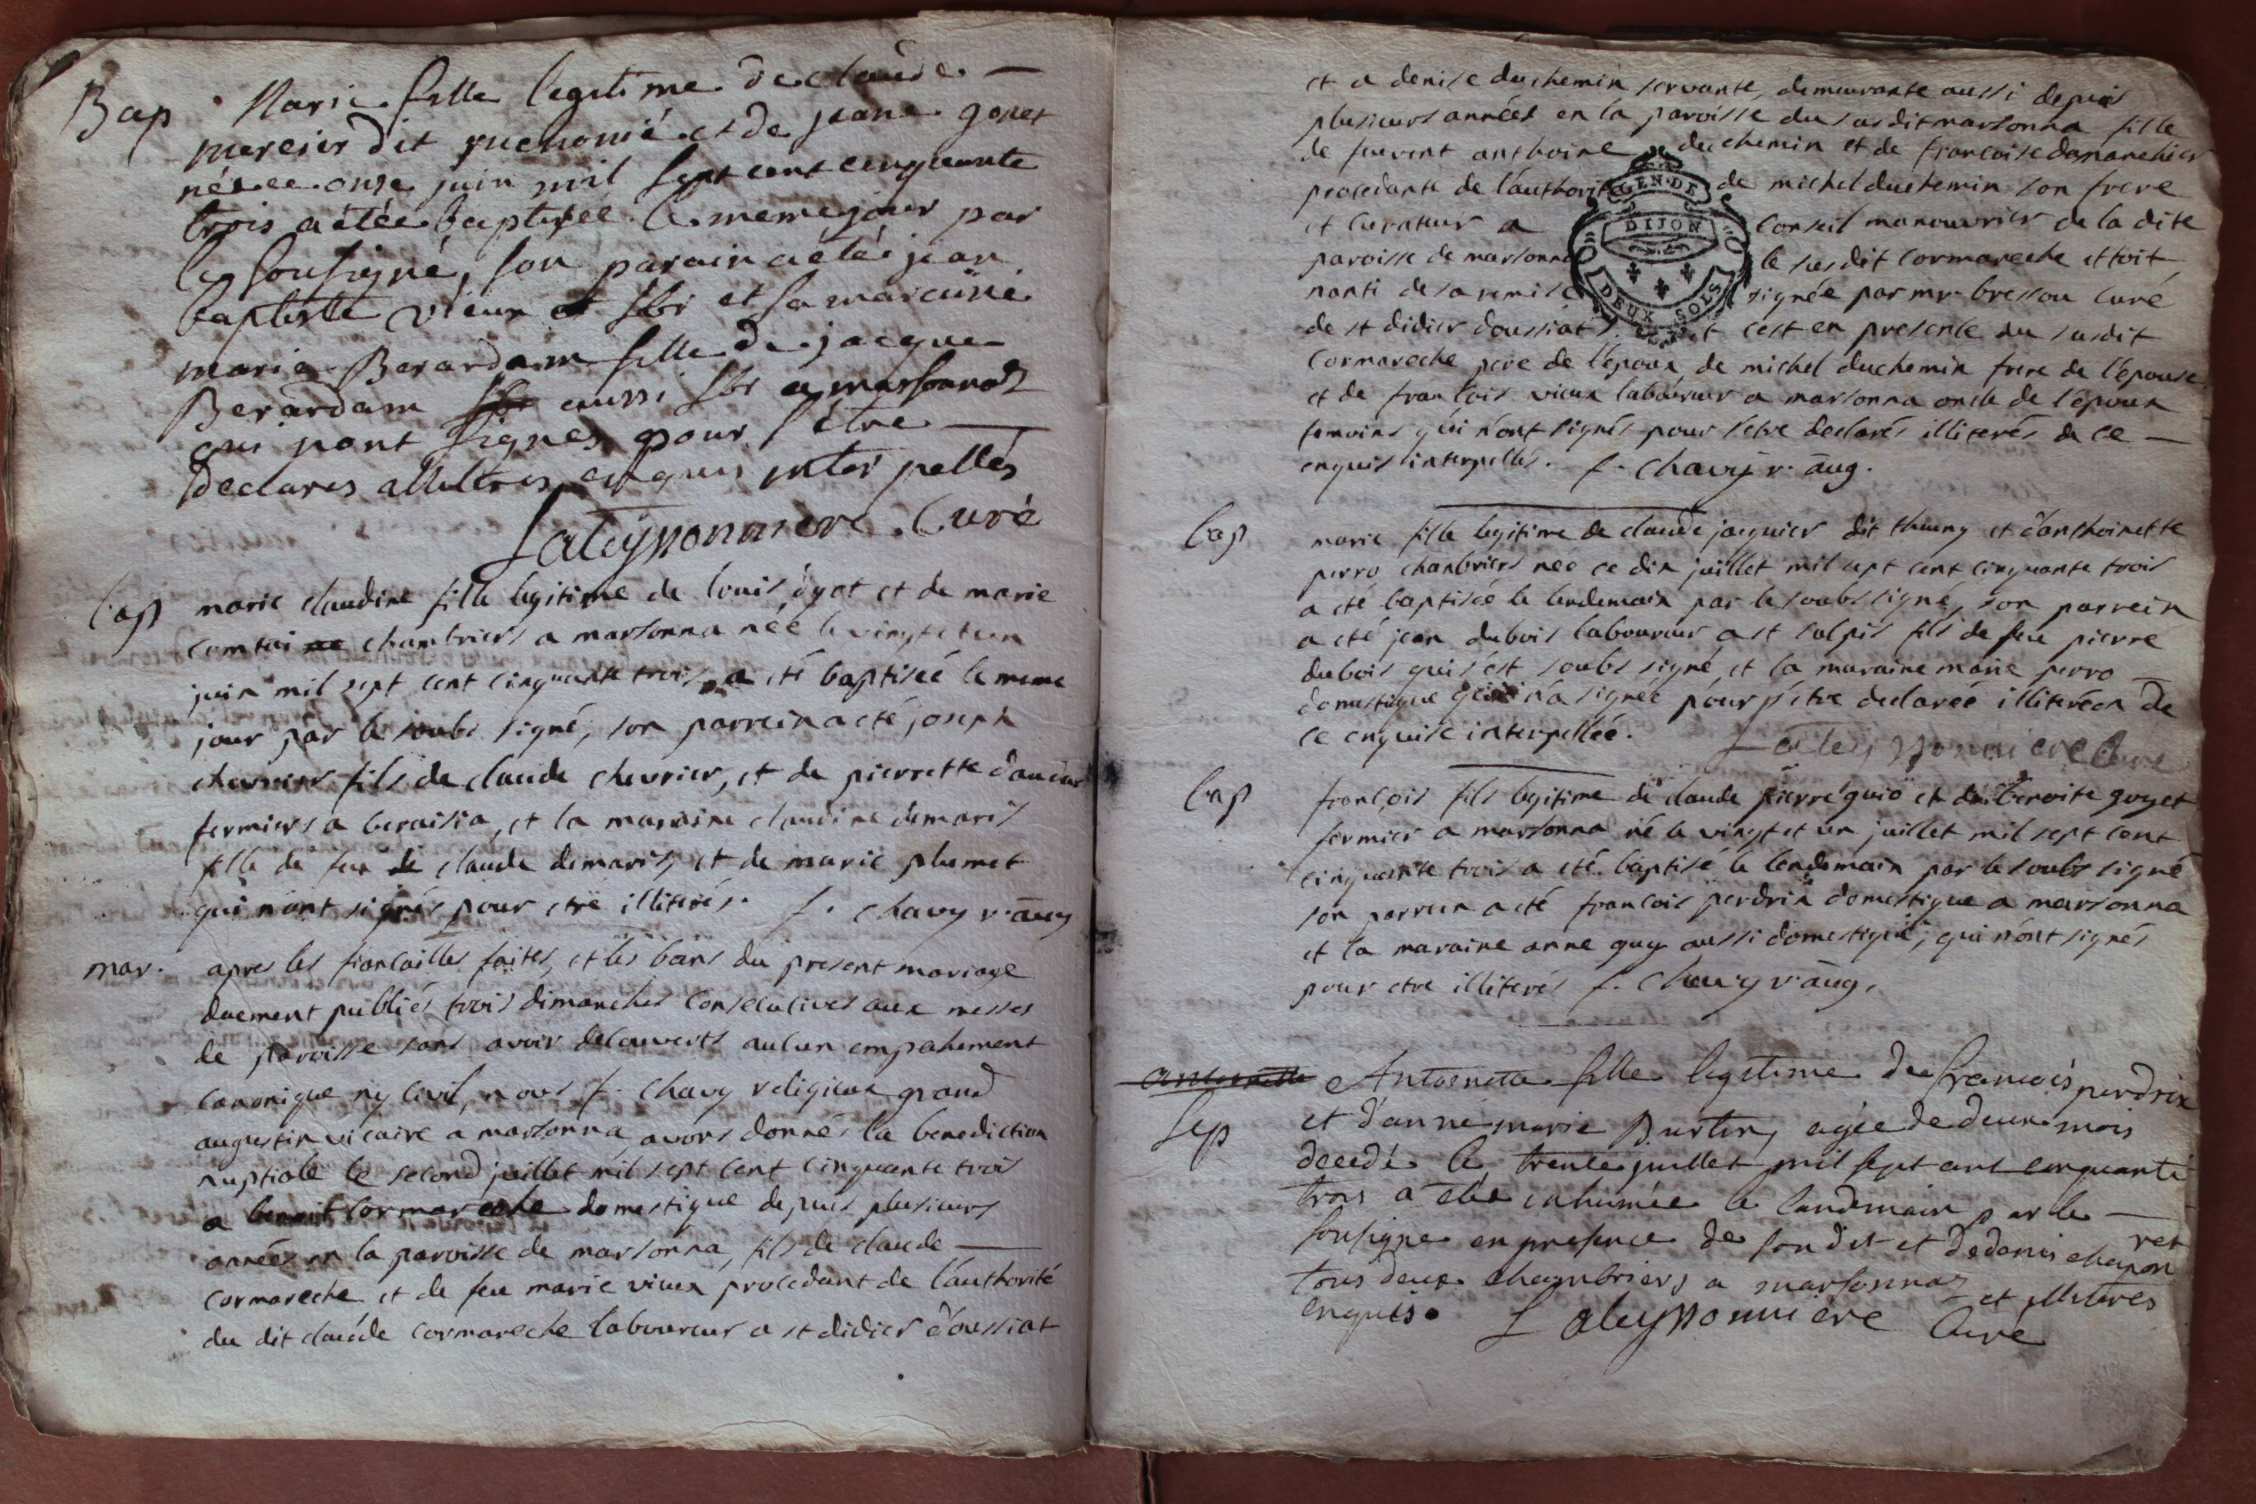 Bap Marie fille legitime de claude
mercier dit ruchonié et de jeane gonet
née ce onze juin mil sept cent cinquante
trois a étée baptisée le meme jour par
le sousigné, son parain a été jean
baptiste vieux sbr et sa maraine
marie Berardam fille de jacque
Berardam aussi sbr a marsonnas
qui nont signes pour l'être
declares allitres enquis interpellés
Lateyssonniere. Curé
bap marie claudine fille legitime de louis oyot et de marie
comtai chambriers a marsonna née le vingt et un
juin mil sept cent cinquante trois, a été baptisée le meme
jour par le soubs signé, son parrein a cté joseph
chevrier fils de claude chevrier, et de pierrette
fermiers a beraisia, et la maraine claudine démaris
fille de feu claude demaris, et de marie plumet
qui n'ont signés pour etre illiterés. f. chavy v. aug
mar. apres les fiancailles faites, et les bans du present mariage
duement publiés trois dimanches consecutives aux messes
de paroisse sans avoir decouverts aucun empehement
canonique ny civil, nous f. chavy religieux grand
augustin vicaire a marsonna avons donnés la benediction
nuptiale le second juillet mil sept cent cinquante trois
a benoit cormareche domestique depuis plusieurs
années en la paroisse de marsonna, fils de claude
cormareche et de feu marie vieux procedant de l'authorité
du dit claude cormareche laboureur a st didier d'oussiat
et a denise duchemin servante, demeurante aussi depuis
plusieurs années en la paroisse du susdit marsonna fille
de fuevent anthoine duchemin et de francoise
procedante de l'authorité de michel duchemin son frere
et curateur a conseil manouvrier de la dite
paroisse de marsonna le susdit cormareche ettoit
nanti de sa remise signée par mr. bressou curé
de st didier doussiat, et c'est en presence du susdit
cormareche pere de l'epoux de michel duchemin frere de l'épouse
et de francois vieux laboureur a marsonna oncle de l'époux
temoins qui n'ont signés pour s'etre declarés illiterés de ce
enquis interpellés. f. chavy v. aug.
GEN. DE
DIJON
DEUX SOLS
bap marie fille legitime de claude jacquier dit thuny et d'anthoinette
perro chanbriers née ce dix juillet mil sept cent cinquante trois
a été baptisée le lendemain par le soubs signé, son parrein
a cté jean dubois laboureur a st sulpis fils de feu pierre
dubois qui s'est soubs signé, et la maraine marie perro
domestique qui n'a signée pour s'etre declarée illiterée de
ce enquise interpellée. Lateyssonniere Curé
bap francois fils legitime de claude pierre guio et de benoite guyet
fermier a marsonna né le vingt et un juillet mil sept cent
cinquante trois a été baptisé le lendemain par le soubs signé
son parrein a cté francois perdrix domestique a marsonna
et la maraine anne guy aussi domestique, qui n'ont signés
pour etre illiterés f. chavy v. aug.
antoinette Antoinette fille legitime de françois perdrix
Sep et d'anne marie Burtin, agée de deux mois
decedé le trente juillet mil sept cent cinquante
trois a été inhumée le landmain par le
sousigne en presence de son dit et de denis chapon
tous deux chambriers a marsonnas et illitres
enquis. Lateyssonniere Curé